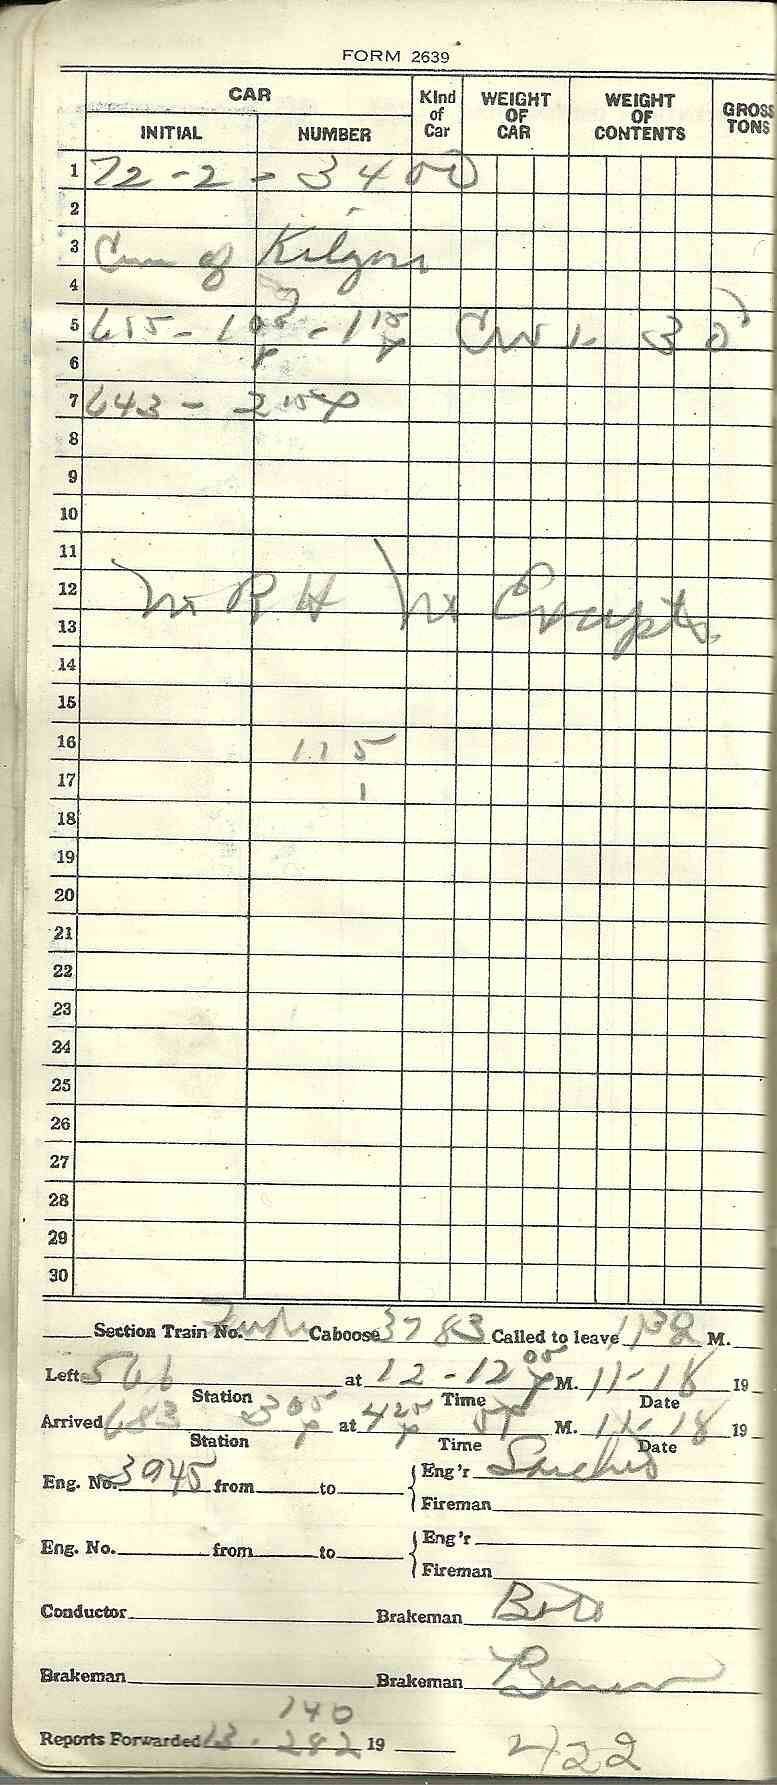 FORM 2639
CAR Kind of Car WEIGHT OF CAR WEIGHT OF CONTENTS GROSS TONS
INITIAL NUMBER
1 72-2-3400
2
3 of Kilgore
4
5 655-
6
7 643-
8
9
10
11
12 R H
13
14
15
16 115
17 1
18
19
20
21
22
23
24
25
26
27
28
29
30
Section Train No. Caboose 3783 Called to leave M.
Left 561 at 12-12 05 P M. 11-18 19
Station Time Date
Arrived 683 3 05 P at 4 25 P 5P M. 11-18 19
Station Time Date
Eng. No. 3945 from to Eng'r Sanches
Fireman
Eng. No. from to Eng'r
Fireman
Conductor Brakeman
Brakeman Brakeman
140
Reports Forwarded 13-282 19 422